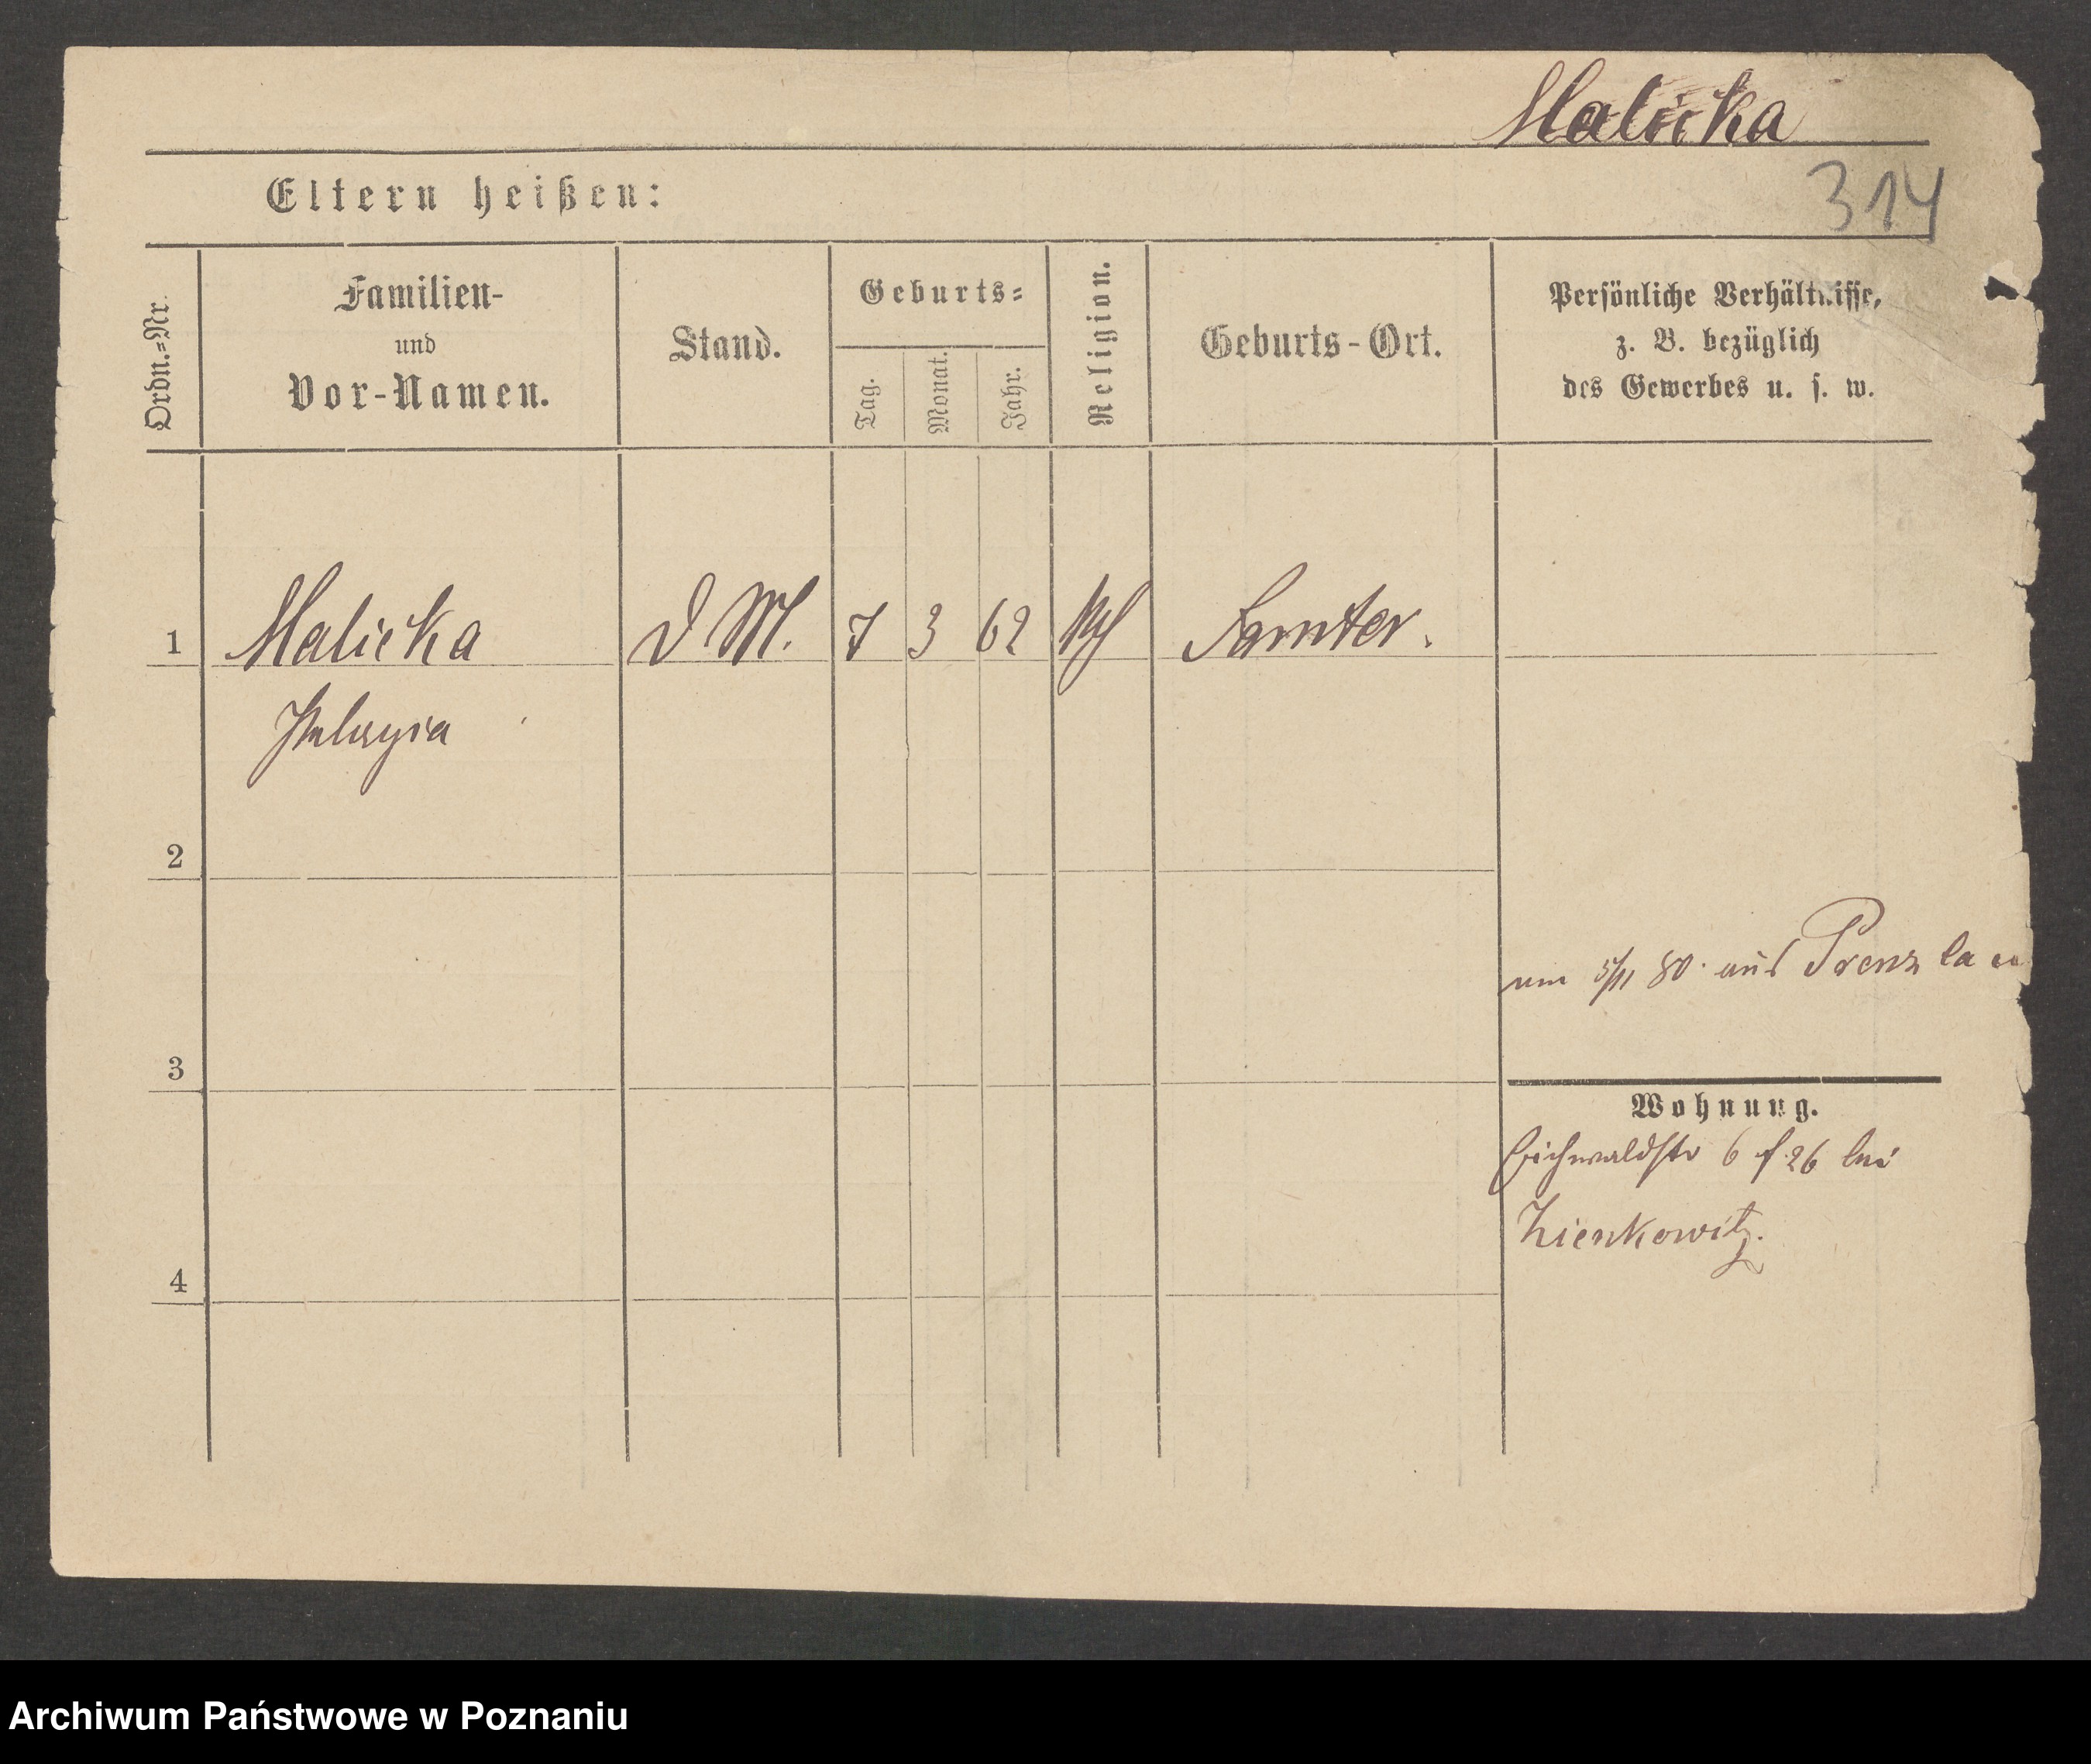 Malicka
314
Eltern heißen:
Ordn.-Nr.
Familien-
und
Vor-Namen.
Stand.
Geburts-
Tag.
Monat.
Jahr.
Religion.
Geburts-Ort.
Persönliche Verhältnisse,
z. B. bezüglich
des Gewerbes u. s. w.
1 Malicka D M. 7 3 62 Samter.
Pelagia
2
5/11 80. aus Prenzlau
3
Wohnung.
Eichwaldstr 6 26 bei
Zienkowitz.
4
Archiwum Państwowe w Poznaniu